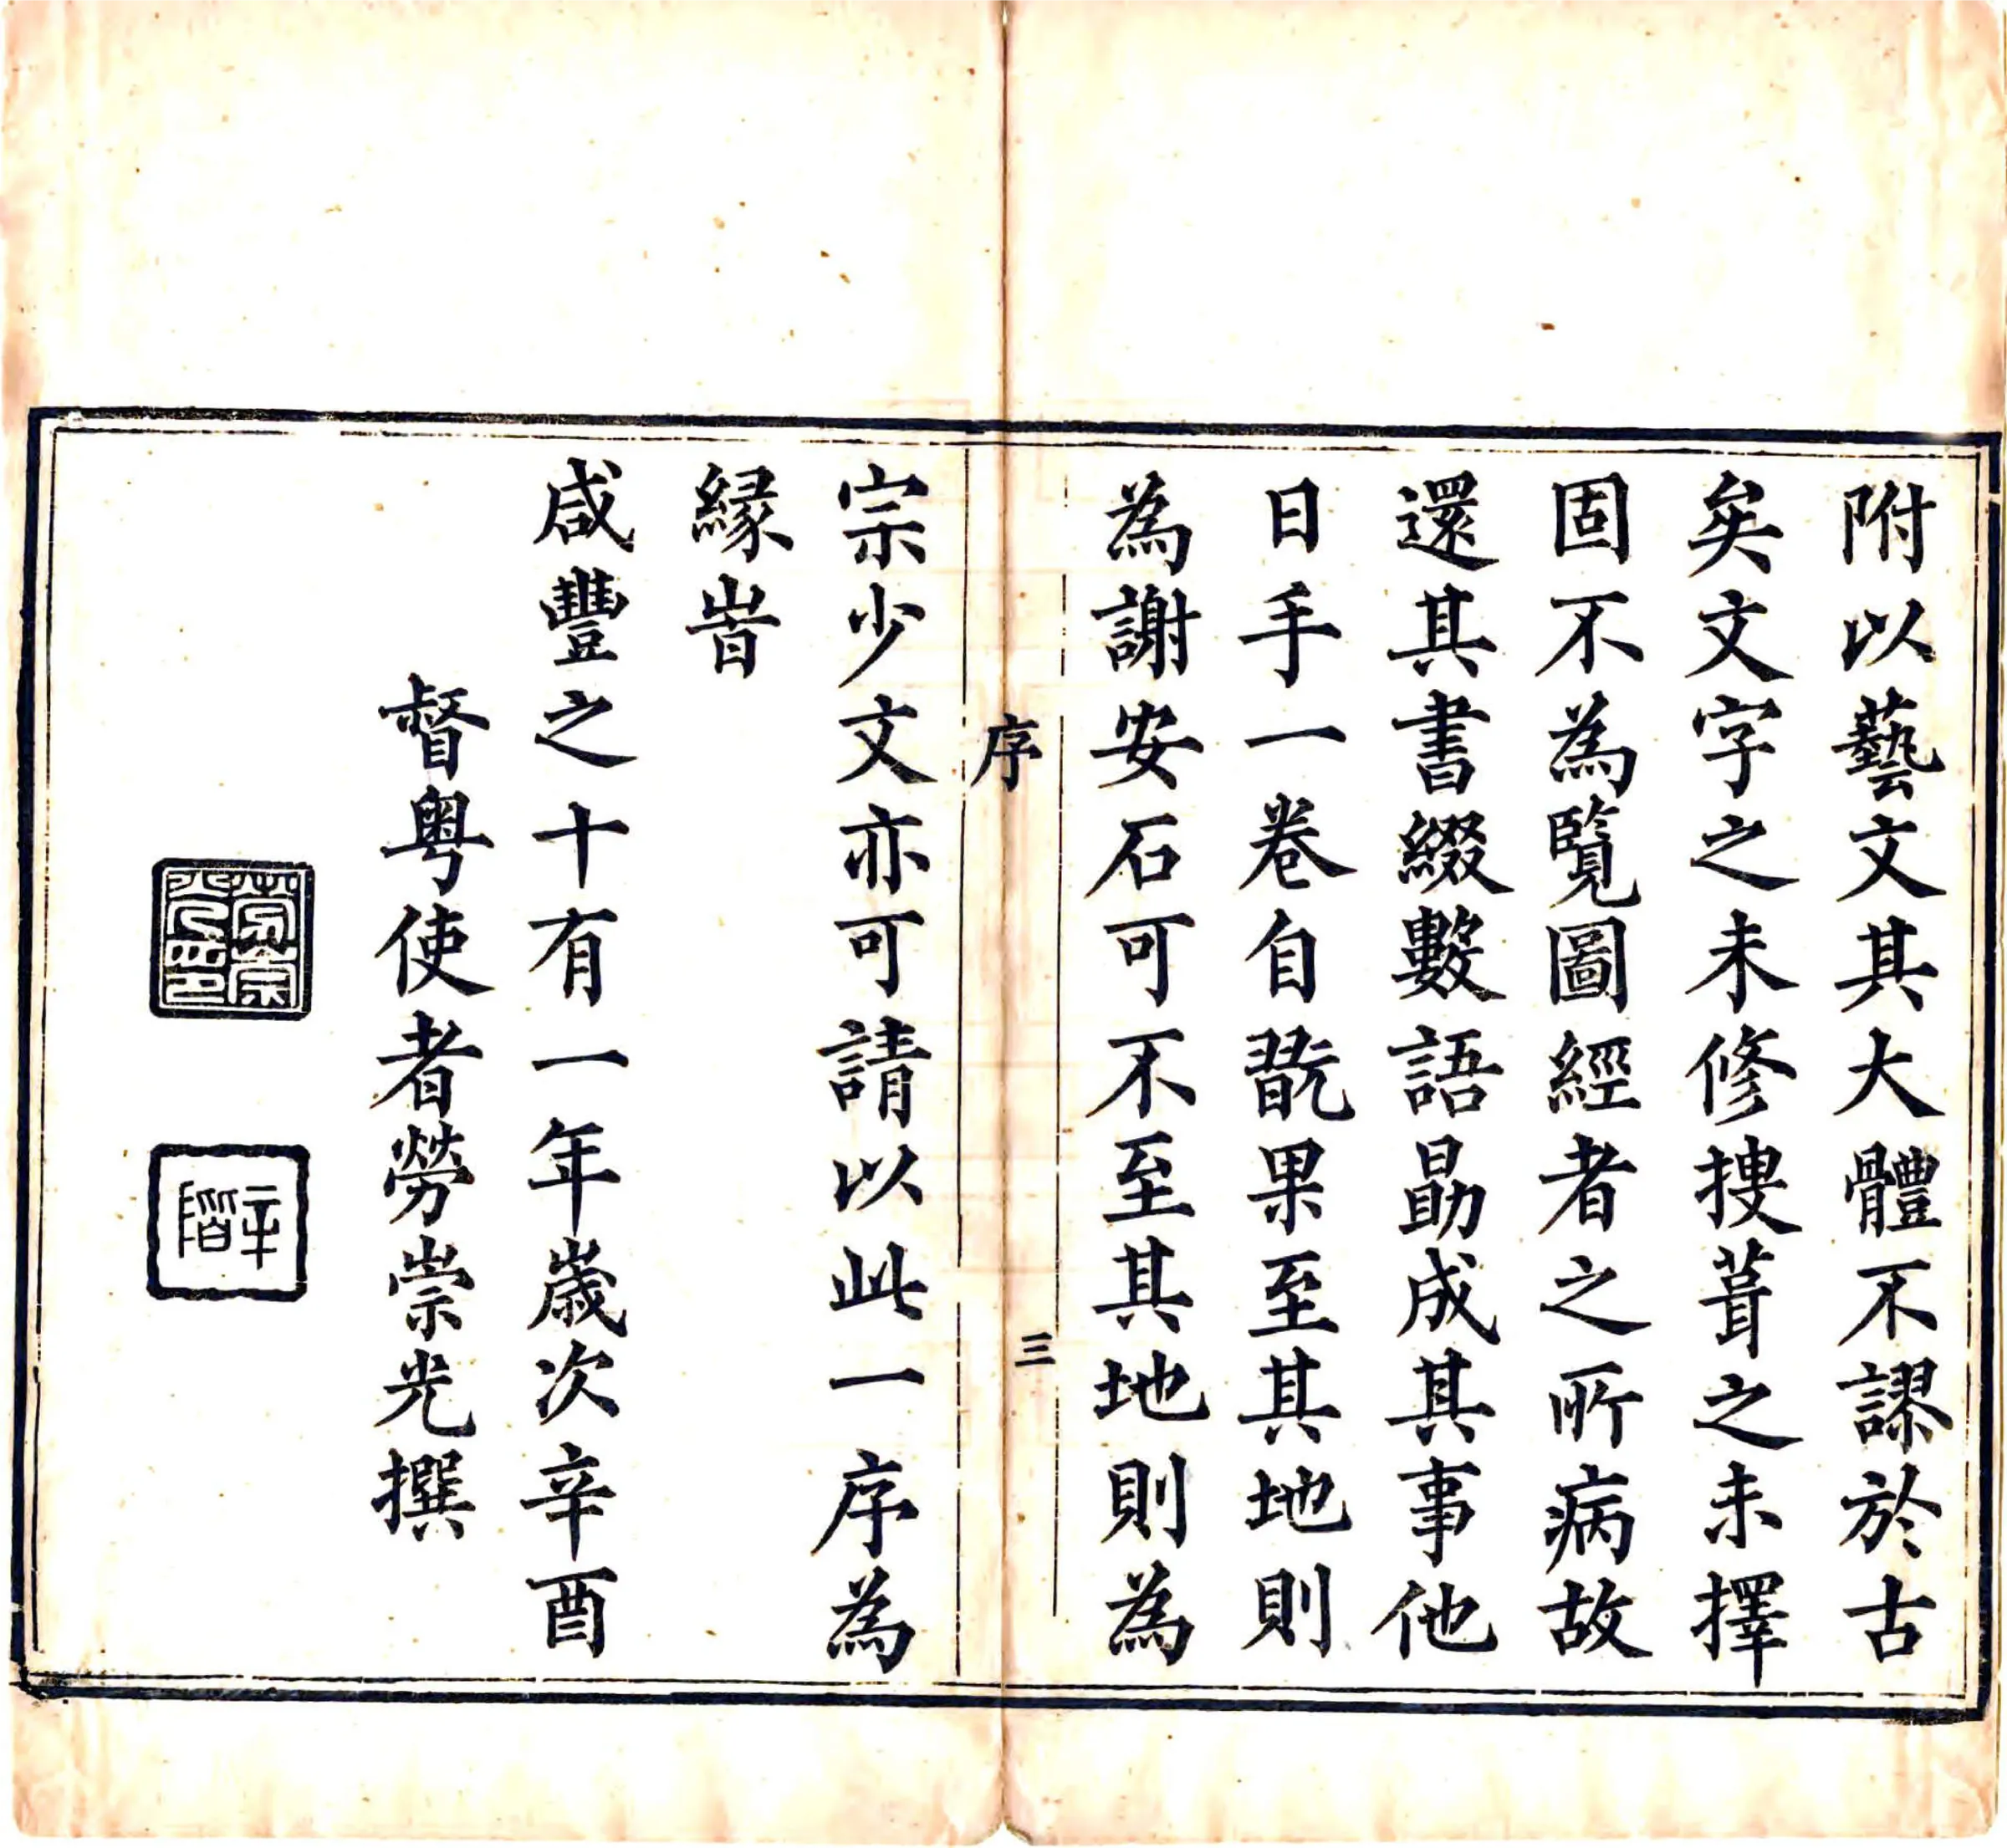 附以藝文其大體不謬於古
矣文字之未修搜葺之未擇
固不為覽圖經者之所病故
還其書綴數語勗成其事他
日手一卷自翫果至其地則
為謝安石可不至其地則為
序
三
宗少文亦可請以此一序為
緣旹
咸豐之十有一年歲次辛酉
督粵使者勞崇光撰
勞崇光印
辛階